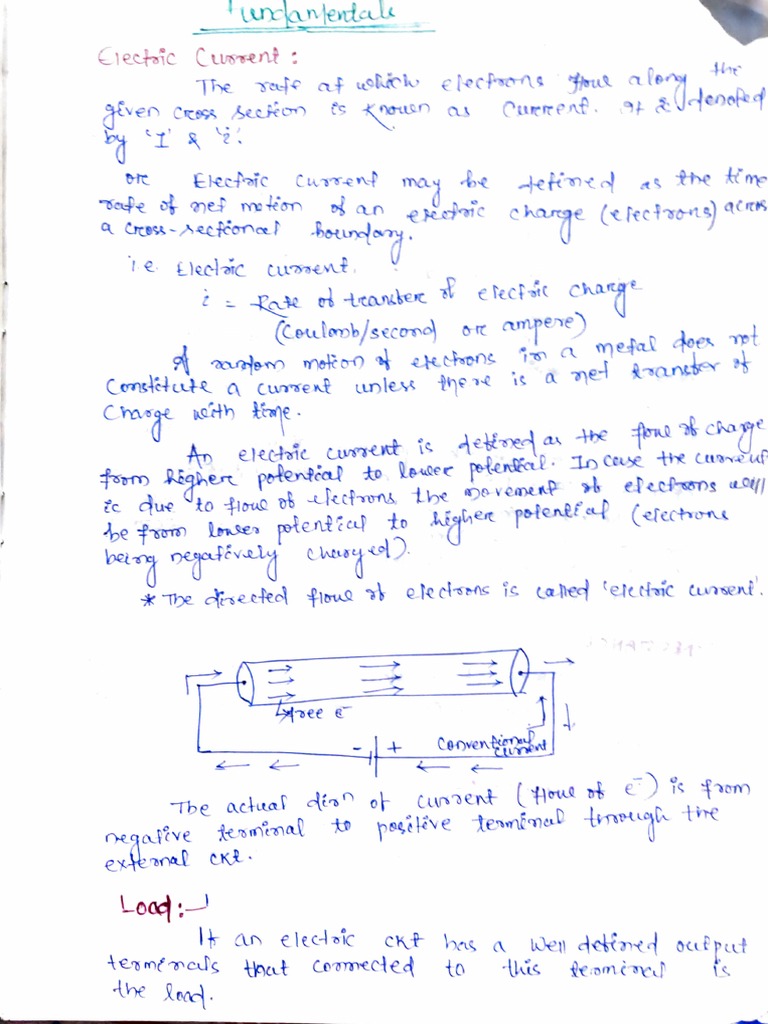 Fundamentals
Electric Current :
The rate at which electrons flow along the
given cross section is known as current. It is denoted
by 'I' & 'i'.
or Electric current may be defined as the time
rate of net motion of an electric charge (electrons) across
a cross-sectional boundary.
i.e Electric current.
i = Rate of transfer of electric charge
(Coulomb/second or ampere)
A random motion of electrons in a metal does not
Constitute a current unless there is a net transfer of
Charge with time.
An electric current is defined as the flow of charge
from higher potential to lower potential. In case the current
is due to flow of electrons the movement of electrons will
be from lower potential to higher potential (electrons
being negatively charged).
* The directed flow of electrons is called 'electric current'.
free e⁻
- + Conventional
current
The actual dirn of current (flow of e⁻) is from
negative terminal to positive terminal through the
external ckt.
Load :-
If an electric ckt has a well defined output
terminals that connected to this terminal is
the load.